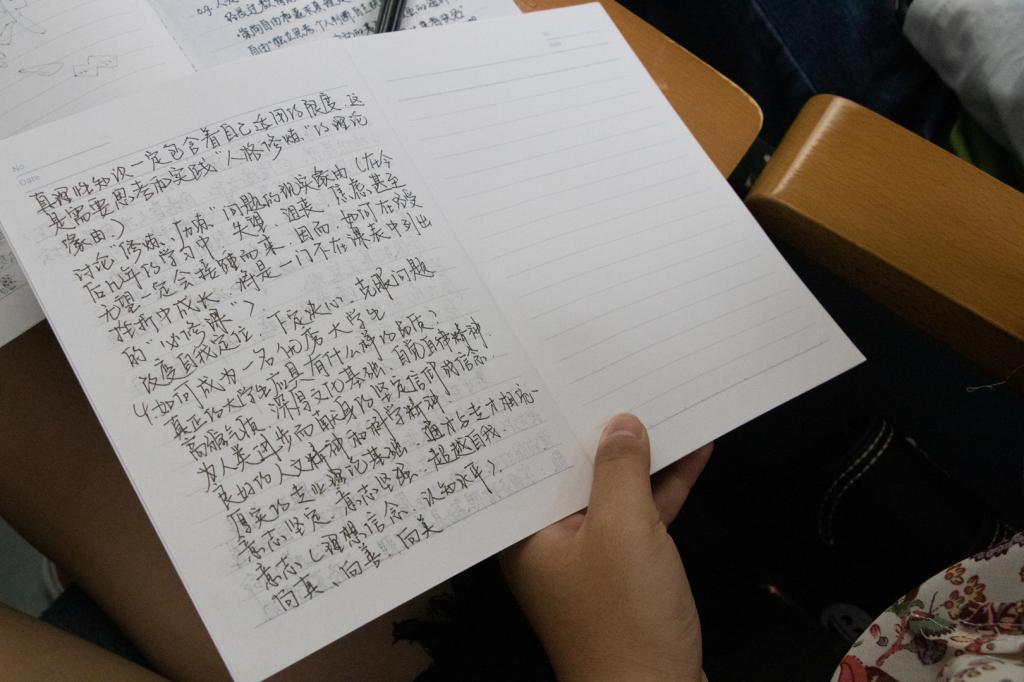 No.
Date
真理性知识一定包含着自己适用的限度.这
是需要思考和实践"人格修炼"的理论
缘由.)
讨论"修炼、历炼"问题的现实缘由(在今
后几年的学习中,失望、沮丧、焦虑甚至
无望一定会接踵而来.因而,如何在承受
挫折中成长,将是一门不在课表中列出
的"必修课")
反度自我定位 下定决心,克服问题
4.如何成为一名优秀大学生
真正的大学生应具有什么样的品质?
高雅气质,深厚文化基础,自觉自律精神
为人类进步而献身的坚定信仰或信念
良好的人文精神和科学精神
厚实的专业理论基础,通才与专才相统一
意志坚定,意志坚强,超越自我.
意志(理想信念,认知水平)
向真,向善,向美
No.
Date